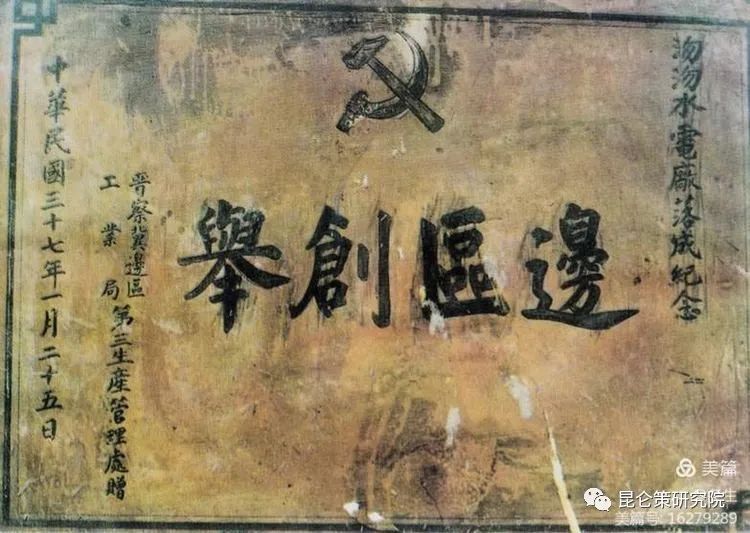 沕沕水電廠落成紀念
邊區創舉
晉察冀邊區
工業局
第三生產管理處贈
中華民國三十七年一月二十五日
美篇
昆仑策研究院
美篇号: 16279289